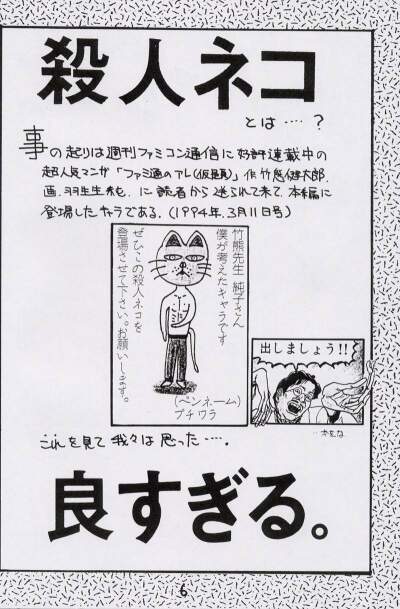 殺人ネコ
とは‥‥?
事の起りは週刊ファミコン通信に好評連載中の
超人気マンガ「ファミ通のアレ(仮題)」作竹熊健太郎、
画、羽生生純、に読者から送られて来て、本編に
登場したキャラである。(1994年、3月11日号)
竹熊先生 純子さん
僕が考えたキャラです
ぜひこの殺人ネコを
登場させて下さい。お願いします。
(ペンネーム)
プチワラ
出しましょう!!
これを見て我々は思った‥‥。
良すぎる。
6